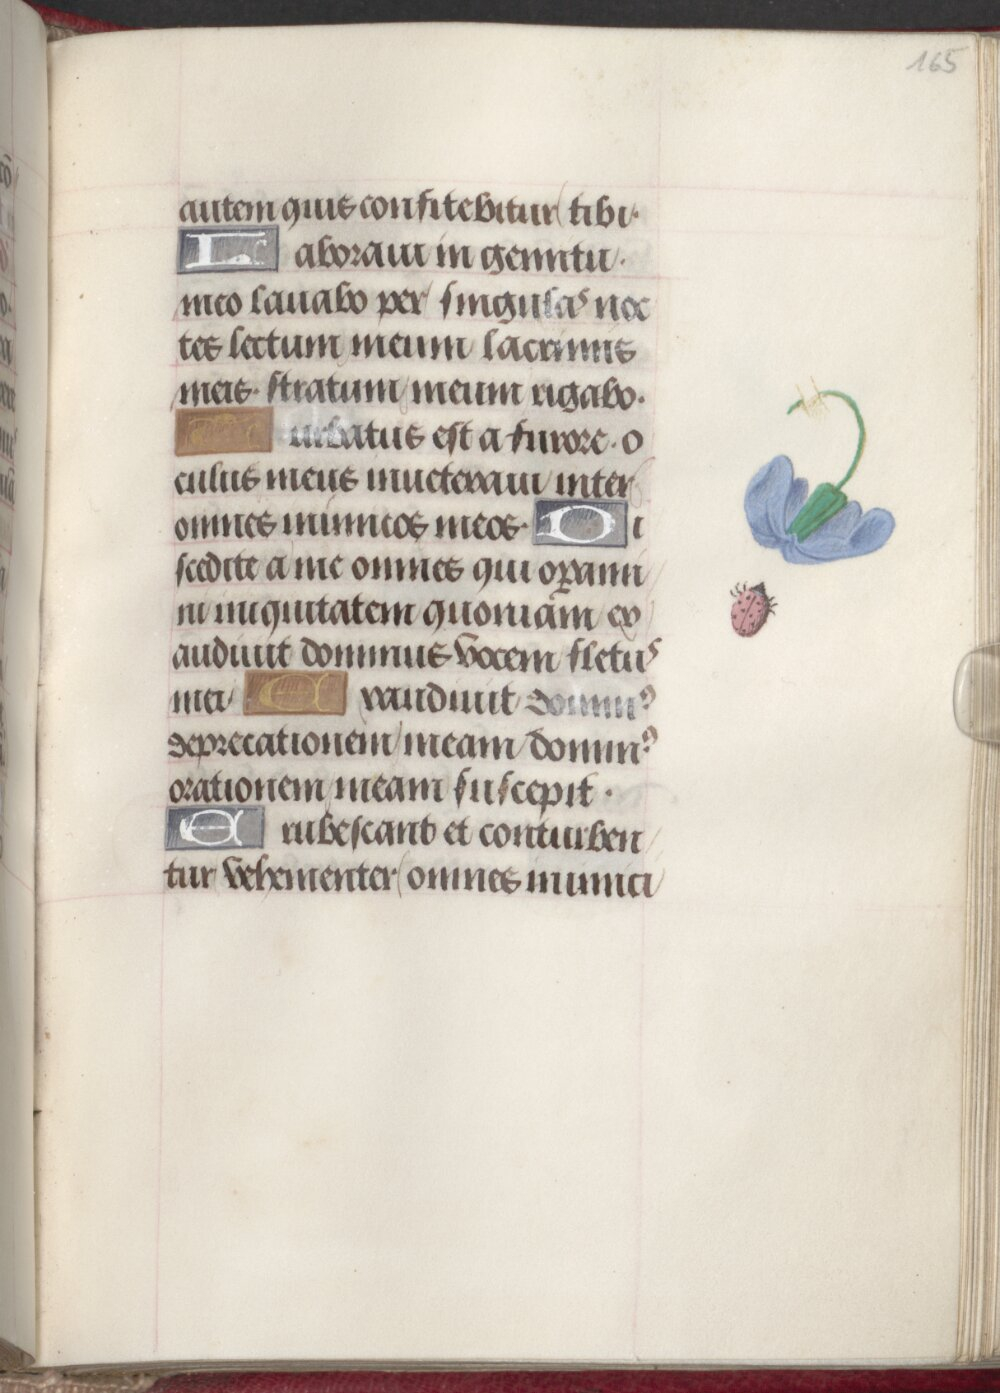 165
autem quis confitebitur tibi·
Laboraui in gemitu·
meo lauabo per singulas noc
tes lectum meum lacrimis
meis· stratum meum rigabo·
Turbatus est a furore· o
culus meus inueteraui inter
omnes inimicos meos· Di
scedite a me omnes qui operami
ni iniquitatem quoniam ex
audiuit dominus vocem fletus
mei Exaudiuit dominus
deprecationem meam dominus
orationem meam suscepit·
Erubescant et conturben
tur vehementer omnes inimici